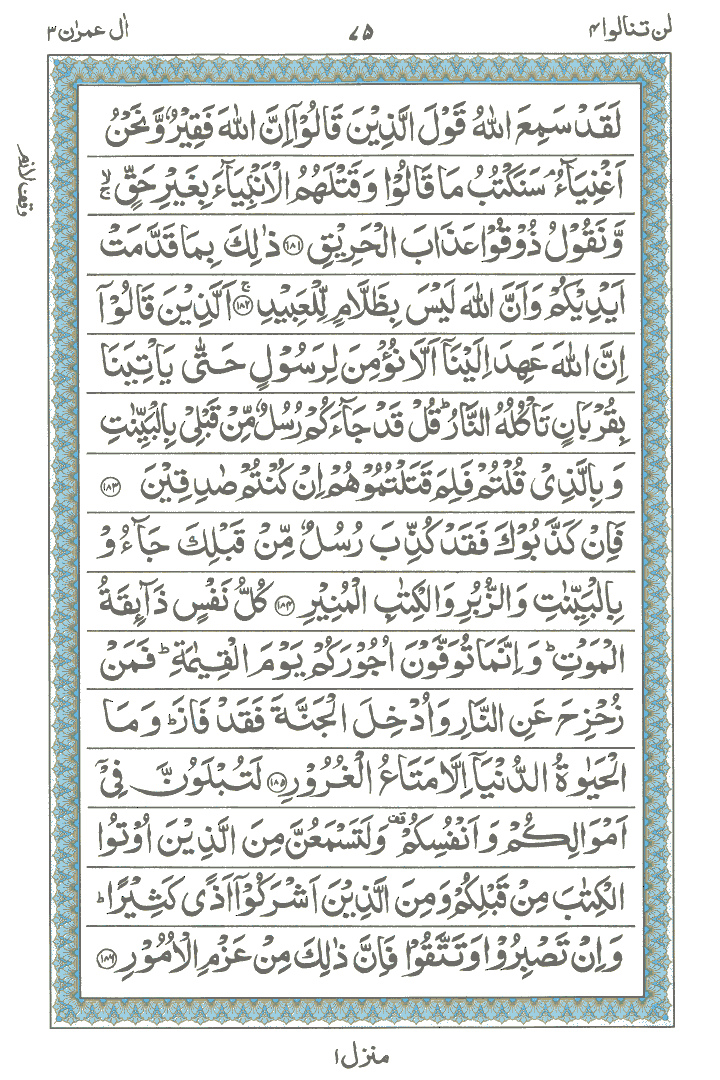 لن تنالوا ۴
۷۵
اٰل عمرٰن ۳
لَقَدۡ سَمِعَ اللّٰهُ قَوۡلَ الَّذِيۡنَ قَالُوۡۤا اِنَّ اللّٰهَ فَقِيۡرٌ وَّنَحۡنُ
اَغۡنِيَآءُ ۘ سَنَكۡتُبُ مَا قَالُوۡا وَقَتۡلَهُمُ الۡاَنۡۢبِيَآءَ بِغَيۡرِ حَقٍّ ۙۚ
وَّنَقُوۡلُ ذُوۡقُوۡا عَذَابَ الۡحَرِيۡقِ ﴿۱۸۱﴾ ذٰلِكَ بِمَا قَدَّمَتۡ
اَيۡدِيۡكُمۡ وَاَنَّ اللّٰهَ لَيۡسَ بِظَلَّامٍ لِّلۡعَبِيۡدِ ﴿۱۸۲﴾ۚ اَلَّذِيۡنَ قَالُوۡۤا
اِنَّ اللّٰهَ عَهِدَ اِلَيۡنَاۤ اَلَّا نُؤۡمِنَ لِرَسُوۡلٍ حَتّٰى يَاۡتِيَنَا
بِقُرۡبَانٍ تَاۡكُلُهُ النَّارُ ؕ قُلۡ قَدۡ جَآءَكُمۡ رُسُلٌ مِّنۡ قَبۡلِىۡ بِالۡبَيِّنٰتِ
وَبِالَّذِىۡ قُلۡتُمۡ فَلِمَ قَتَلۡتُمُوۡهُمۡ اِنۡ كُنۡتُمۡ صٰدِقِيۡنَ ﴿۱۸۳﴾
فَاِنۡ كَذَّبُوۡكَ فَقَدۡ كُذِّبَ رُسُلٌ مِّنۡ قَبۡلِكَ جَآءُوۡ
بِالۡبَيِّنٰتِ وَالزُّبُرِ وَالۡكِتٰبِ الۡمُنِيۡرِ ﴿۱۸۴﴾ كُلُّ نَفۡسٍ ذَآٮِٕقَةُ
الۡمَوۡتِ ؕ وَاِنَّمَا تُوَفَّوۡنَ اُجُوۡرَكُمۡ يَوۡمَ الۡقِيٰمَةِ ؕ فَمَنۡ
زُحۡزِحَ عَنِ النَّارِ وَاُدۡخِلَ الۡجَنَّةَ فَقَدۡ فَازَ ؕ وَمَا
الۡحَيٰوةُ الدُّنۡيَاۤ اِلَّا مَتَاعُ الۡغُرُوۡرِ ﴿۱۸۵﴾ لَتُبۡلَوُنَّ فِىۡۤ
اَمۡوَالِكُمۡ وَاَنۡفُسِكُمۡ قف وَلَتَسۡمَعُنَّ مِنَ الَّذِيۡنَ اُوۡتُوا
الۡكِتٰبَ مِنۡ قَبۡلِكُمۡ وَمِنَ الَّذِيۡنَ اَشۡرَكُوۡۤا اَذًى كَثِيۡرًا ؕ
وَاِنۡ تَصۡبِرُوۡا وَتَتَّقُوۡا فَاِنَّ ذٰلِكَ مِنۡ عَزۡمِ الۡاُمُوۡرِ ﴿۱۸۶﴾
وقف لازم
منزل ۱